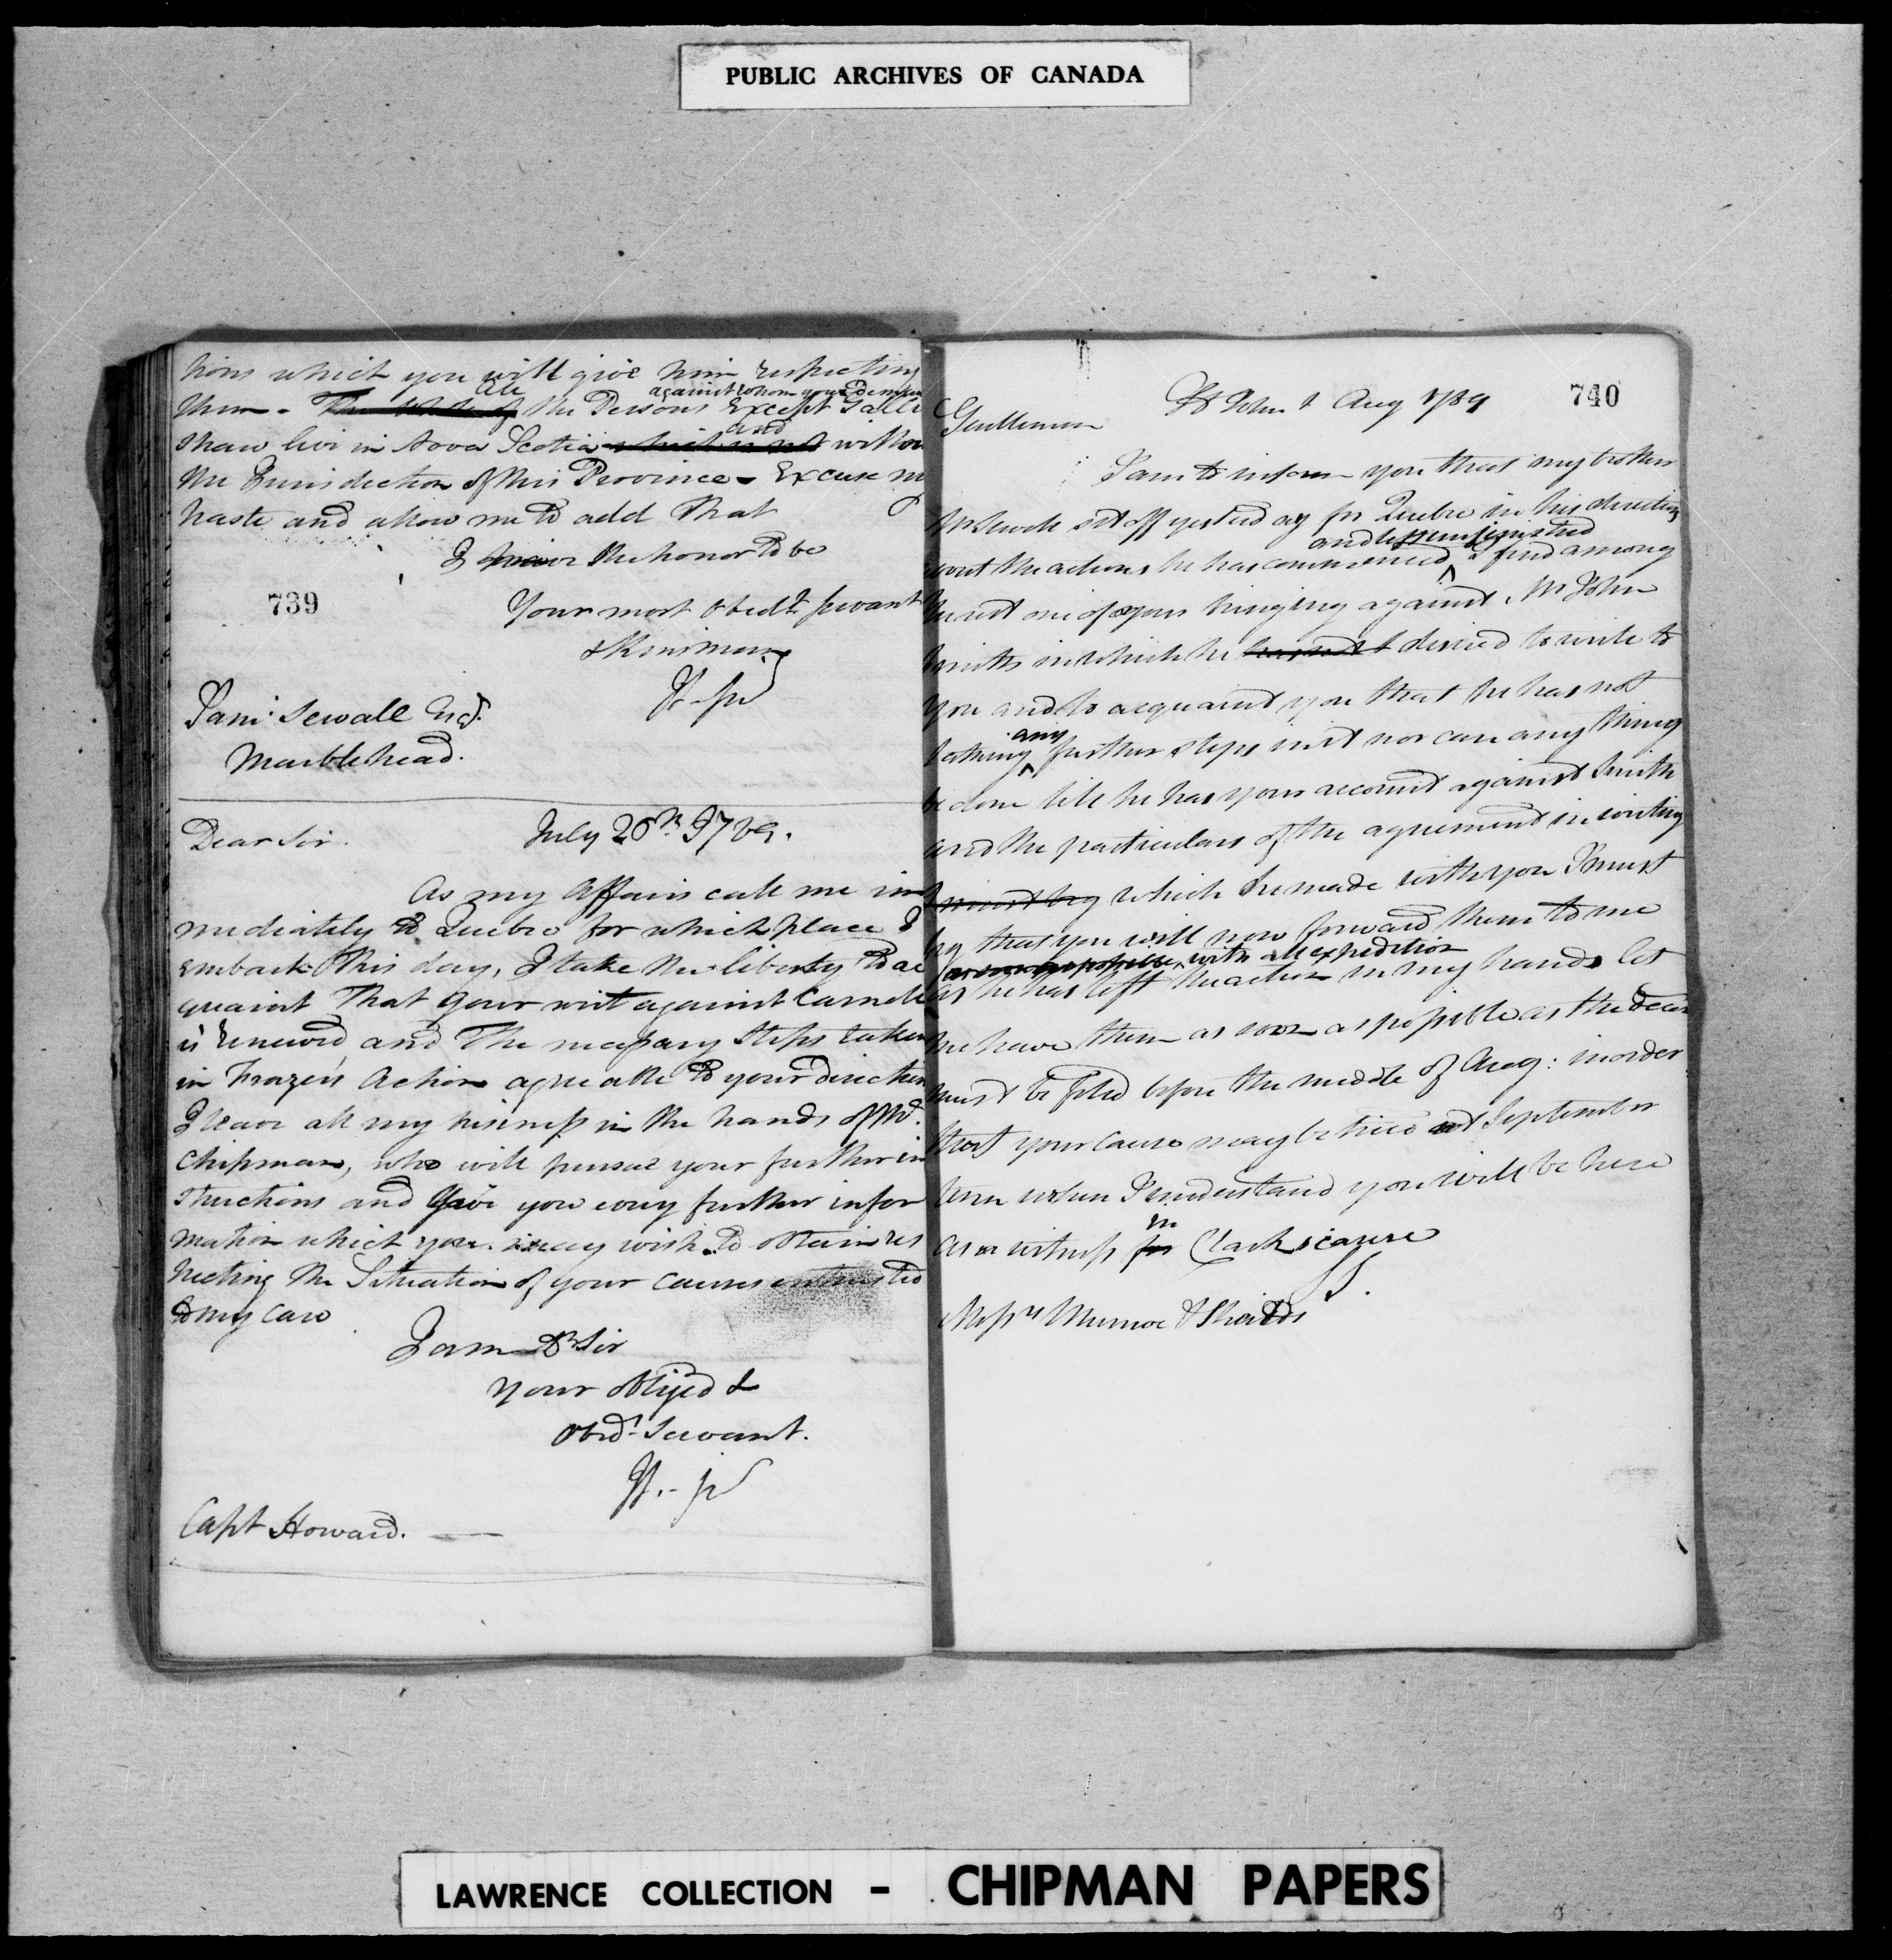 PUBLIC ARCHIVES OF CANADA
tions which you will give him respecting
All against whom your deman
them - The whole of the Persons Except Galli
and
shaw live in Nova Scotia which is not withou
the Jurisdiction of this Province - Excuse my
haste and allow me to add That
I have the honor to be
739
Your most Obedt servant
& Kinsman
Saml Sewall Esqr.
Marblehead.
Dear Sir. July 20th 1789.
As my Affairs call me im
mediately to Quebec for which place I
embark this day, I take the liberty to ac
quaint That your writ against
is renewed and The necessary Steps taken
in Frazers Action agreable to your direction
I leave all my business in the hands of Mr.
Chipman, who will pursue your further in
structions and Give you every further infor
mation which you may wish to obtain res
pecting the Situation of your causes entrusted
to my care
I am Dr Sir
your obliged &
Obedt Servant.
Capt Howard.
740
St John 1 Aug 1789
Gentlemen
I am to inform you that my brother
Mr Sewell set off yesterday for Quebec in his direction
and left unfinished
about the actions he has commenced I find among
them one of yours bringing against Mr John
Smith in which he desired to write to
you and to acquaint you that he has not
any
taking further steps in it nor can any thing
be done till he has your account against Smith
and the particulars of the agreement in writing
I must beg which he made with you I must
beg that you will now forward them to me
as soon as possible with all expedition
as he has left the action in my hands let
me have them as soon as possible as the
must be filed before the middle of Aug: in order
that your cause may be tried at September
term when I understand you will be here
in
as a witness for Clarks cause
Messrs Munroe & Shields
LAWRENCE COLLECTION - CHIPMAN PAPERS